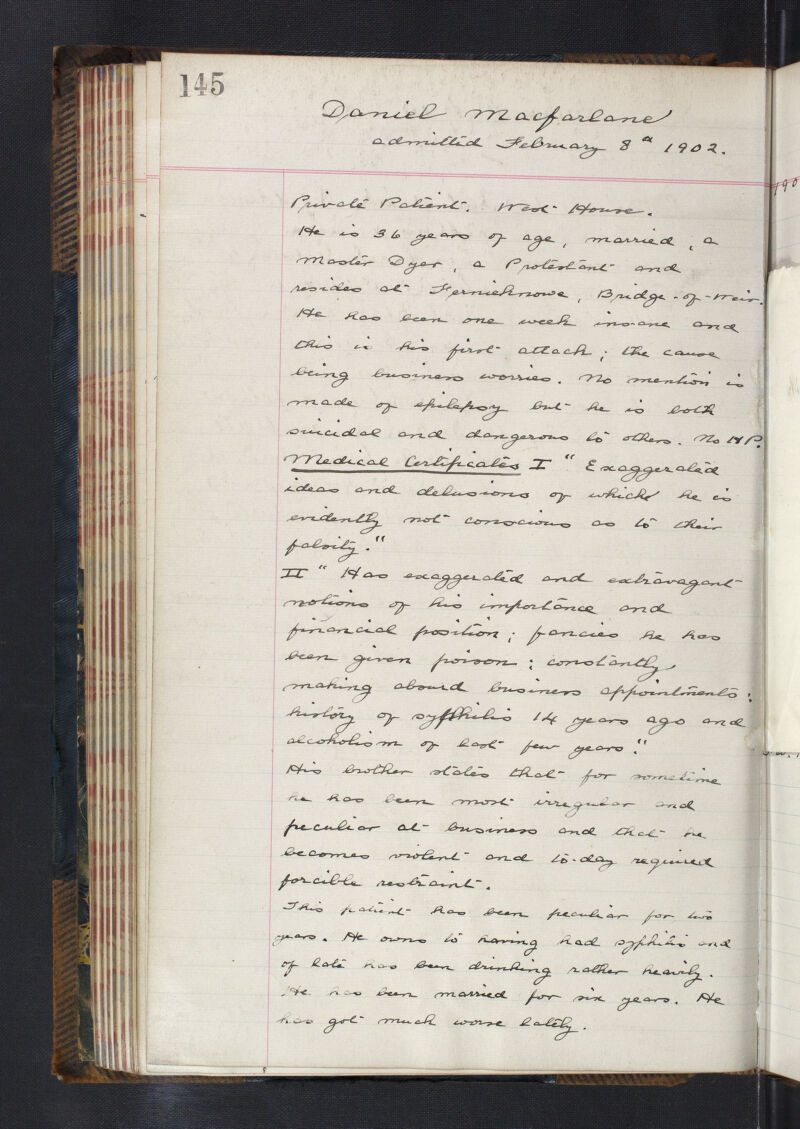 145
Daniel Macfarlane
admitted February 8th 1902.
190
Private Patient. West House.
He is 36 years of age, married, a
Master Dyer, a Protestant and
resides at Fernieknowe, Bridge-of-Weir.
He has been one week insane and
this is his first attack; the cause
being business worries. No mention is
made of epilepsy but he is both
suicidal and dangerous to others. No HP.
Medical Certificates I "Exaggerated
ideas and delusions of which he is
evidently not conscious as to their
falsity."
II "Has exaggerated and extravagant
notions of his importance and
financial position; fancies he has
been given poison; constantly
making absurd business appointments:
history of syphilis 14 years ago and
alcoholism of last few years."
His brother states that for sometime
he has been most irregular and
peculiar at business and that he
becomes violent and to-day required
forcible restraint.
This patient has been peculiar for two
years. He owns to having had syphilis and
of late has been drinking rather heavily.
He has been married for six years. He
has got much worse lately.